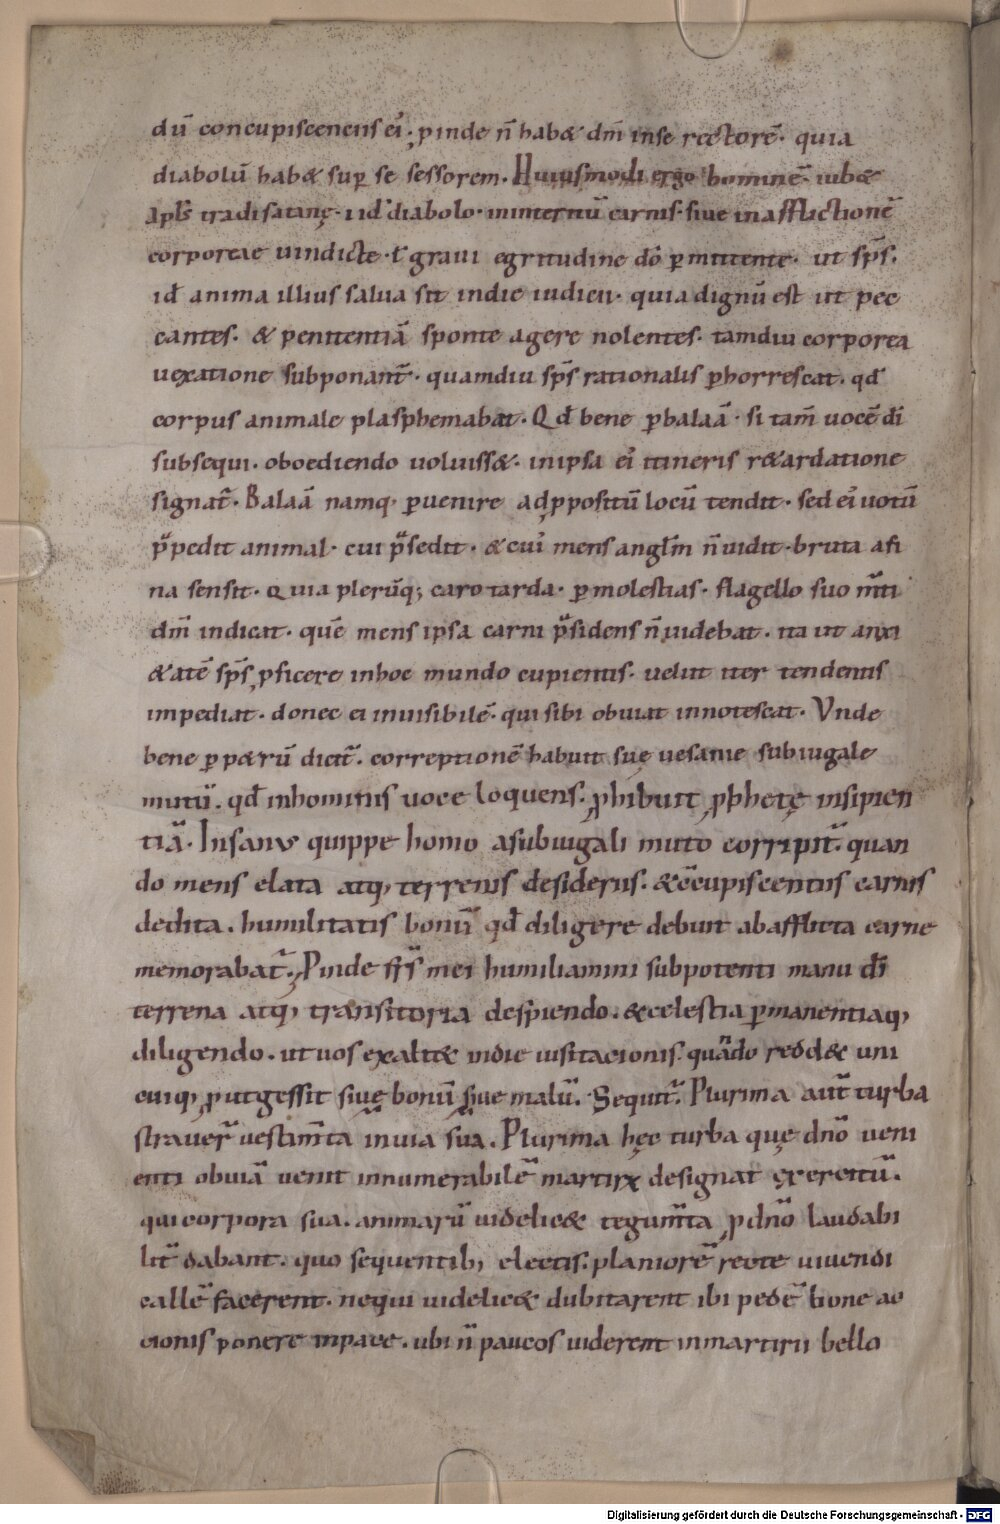 dū concupiscencias ei᷒, pinde n̄ hab& dm̄ inse rectorē. quia
diabolū hab& sup̱ se sessorem. Huiusmodi ergo hominē iub&
apl̄s tradi satanę. i id̄ diabolo. ininteritū carnis. siue inafflictionē
corporeae uindicte. ł graui egritudine dō ꝑmittente. ut sp̄s.
id̄ anima illius salua sit indie iudicii. quia dignū est ut pec
cantes. & penitentiā sponte agere nolentes. tamdiu corporea
uexatione subponant᷑. quamdiu sp̄s rationalis ꝑhorrescat. qd̄
corpus animale plasphemabat. Qd̄ bene ꝑbalaā. si tam̄ uocē dī
subsequi. oboediendo uoluiss&. inipsa ei᷒ itineris r&ardatione
signat᷑. Balaā namq, ꝑuenire adꝓpositū locū tendit. sed ei᷒ uotū
p̄pedit animal. cui p̄sedit. &cui᷒ mens angl̄m n̄ uidit. bruta asi
na sensit. Quia plerūq; caro tarda. ꝑmolestias. flagello suo m̄ti
dm̄ indicat. quē mens ipsa carni p̄sidens n̄ uidebat. ita ut anxi
&atē sp̄s ꝓficere inhoc mundo cupientis. uelut iter tendentis
impediat. donec ei inuisibilē. qui sibi obuiat innotescat. Vnde
bene ꝑp&rū dicit᷑. correptionē habuit suę uesanie subiugale
mutū. qd̄ inhominis uoce loquens. ꝓhibuit ꝓph&ę insipien
tiā. Insanus quippe homo asubiugali muto corripit᷑. quan
do mens elata atq, terrenis desideriis. &cōcupiscentiis carnis
dedita. humilitatis bonū qd̄ diligere debuit abafflicta carne
memorabat᷑. Pinde fr̄s mei humiliamini subpotenti manu dī
terrena atq, transitoria despiciendo. &celestia ꝑmanentiaq,
diligendo. ut uos exalt& indie uisitacionis. quādo redd& uni
cuiq, ꝓutgessit siue bonū siue malū. Sequit᷑. Plurima aut̄ turba
strauer᷑ uestim̄ta in uia sua. Plurima hęc turba quę dn̄o ueni
enti obuiā uenit innumerabilē martirꝝ designat ęxercitū.
qui corpora sua. animarū uidelic& tegum̄ta, ꝓdn̄o laudabi
lit̄ dabant. quo sequentib, electis. planiorē recte uiuendi
callē facerent. nequi uidelic& dubitarent ibi pedē bone ac
cionis ponere inpace. ubi n̄ paucos uiderent inmartirii bello
Digitalisierung gefördert durch die Deutsche Forschungsgemeinschaft - DFG